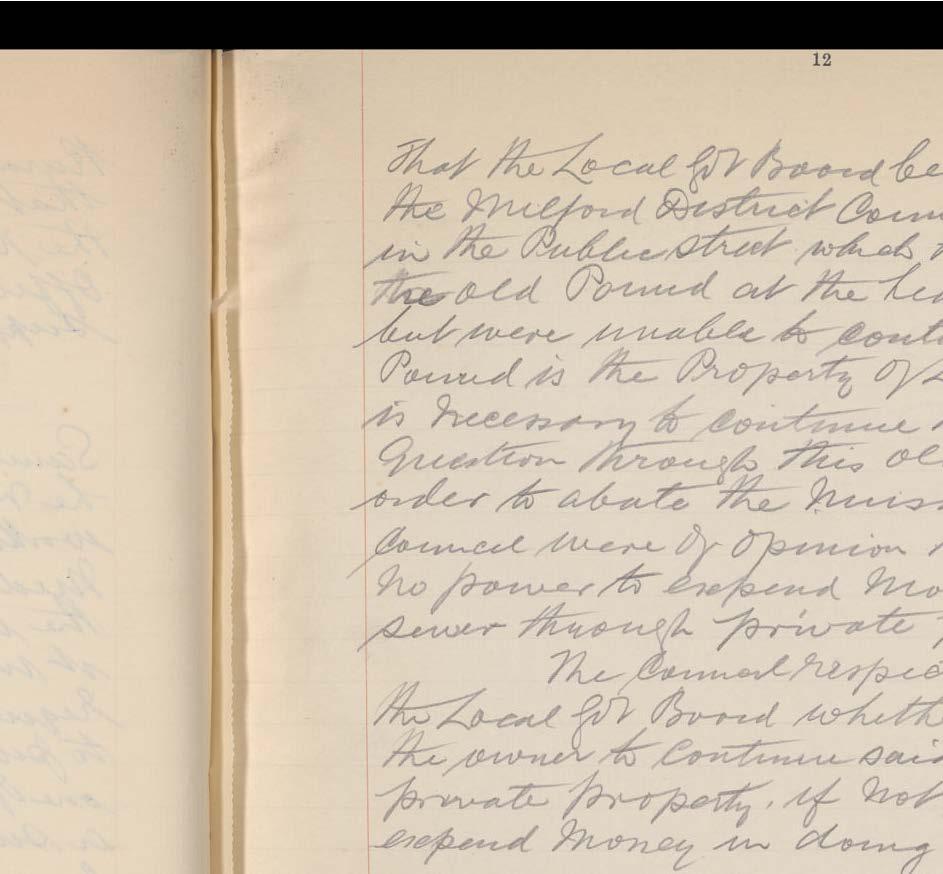 12
That the Local Gov Board be
the Milford District Coun
in the Public street which
the old Pound at the
but were unable to conti
Pound is the Property of
is necessary to continue
Question through this ol
order to abate the Nuis
Council were of opinion
No power to expend Mo
sewer through private
The Council respec
the Local Gov Board wheth
the owner to Continue said
private Property, if Not
expend Money in doing